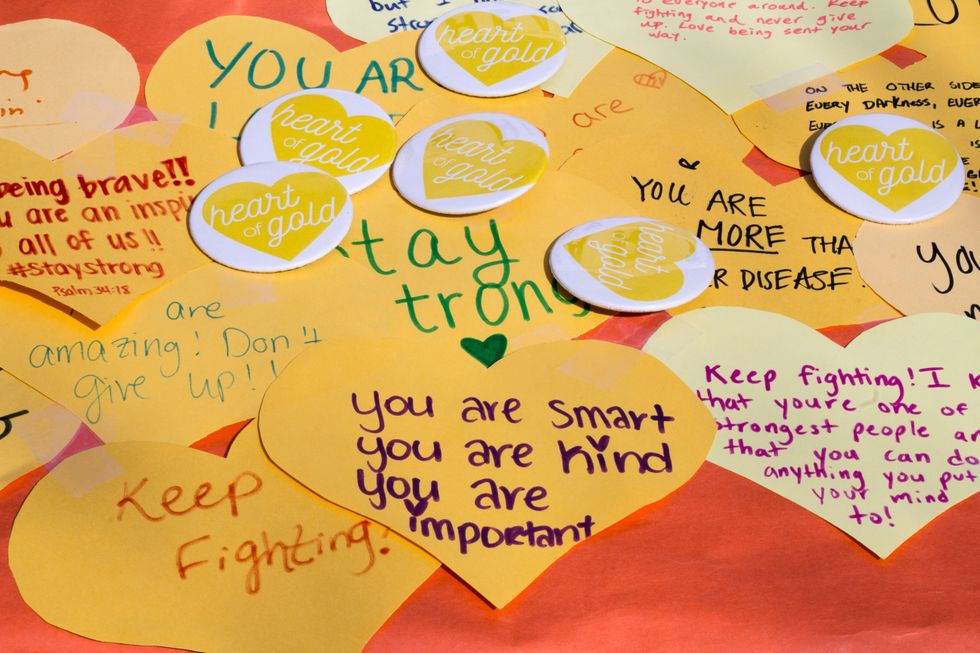 but I
to everyone around. Keep
fighting and never give
up. Love being sent your
way.
YOU AR
heart
of gold
heart
of gold
heart
of gold
heart
of gold
heart
of gold
heart
of gold
are
ON THE OTHER SIDE
EVERY DARKNESS, EVER
IS A
being brave!!
are an inspi
all of us!!
#staystrong
Psalm 34:18
YOU ARE
MORE THA
DISEASE!
tay
trong
are
amazing! Don't
give up!!
you are smart
you are kind
you are
important
Keep fighting! I
that youre one of
strongest people
that you can do
anything you put
your mind
to!
Keep
Fighting!